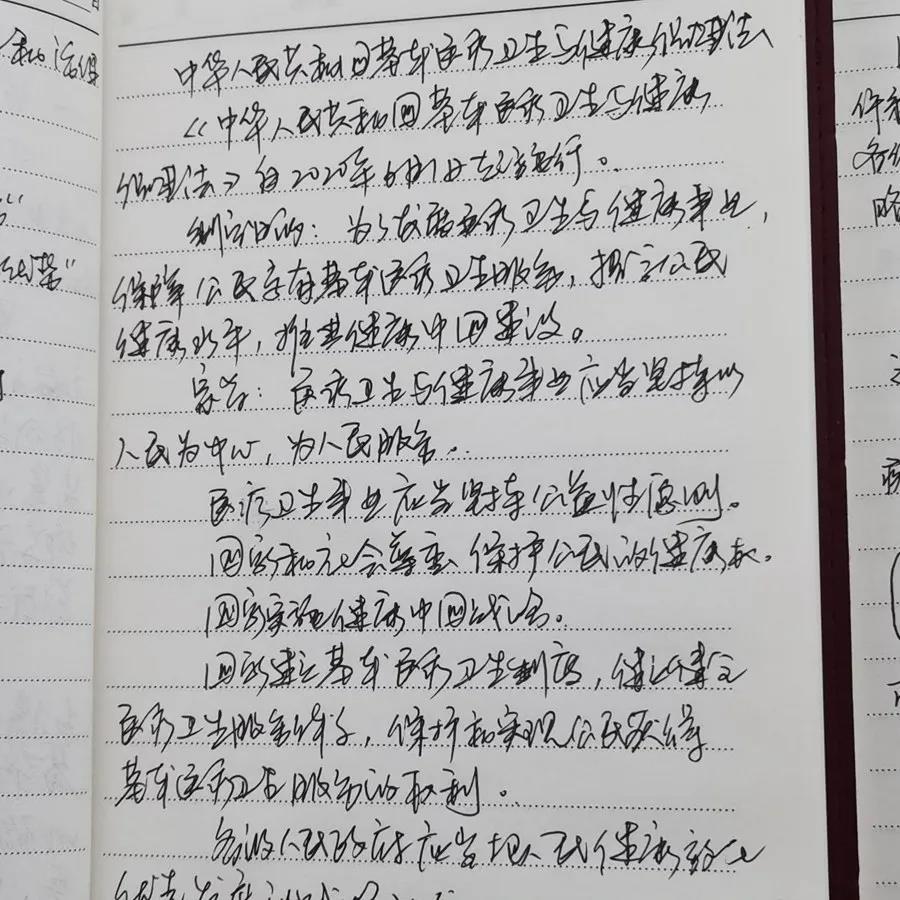 和治理
中华人民共和国基本医疗卫生与健康促进法
《中华人民共和国基本医疗卫生与健康
促进法》自2020年6月1日起施行。
制定目的：为了发展医疗卫生与健康事业，
保障公民享有基本医疗卫生服务，提高公民
健康水平，推进健康中国建设。
宗旨：医疗卫生与健康事业应当坚持以
人民为中心，为人民服务。
医疗卫生事业应当坚持公益性原则。
国家和社会尊重、保护公民的健康权。
国家实施健康中国战略。
国家建立基本医疗卫生制度，建立健全
医疗卫生服务体系，保护和实现公民获得
基本医疗卫生服务的权利。
各级人民政府应当把人民健康放在
优先发展的战略